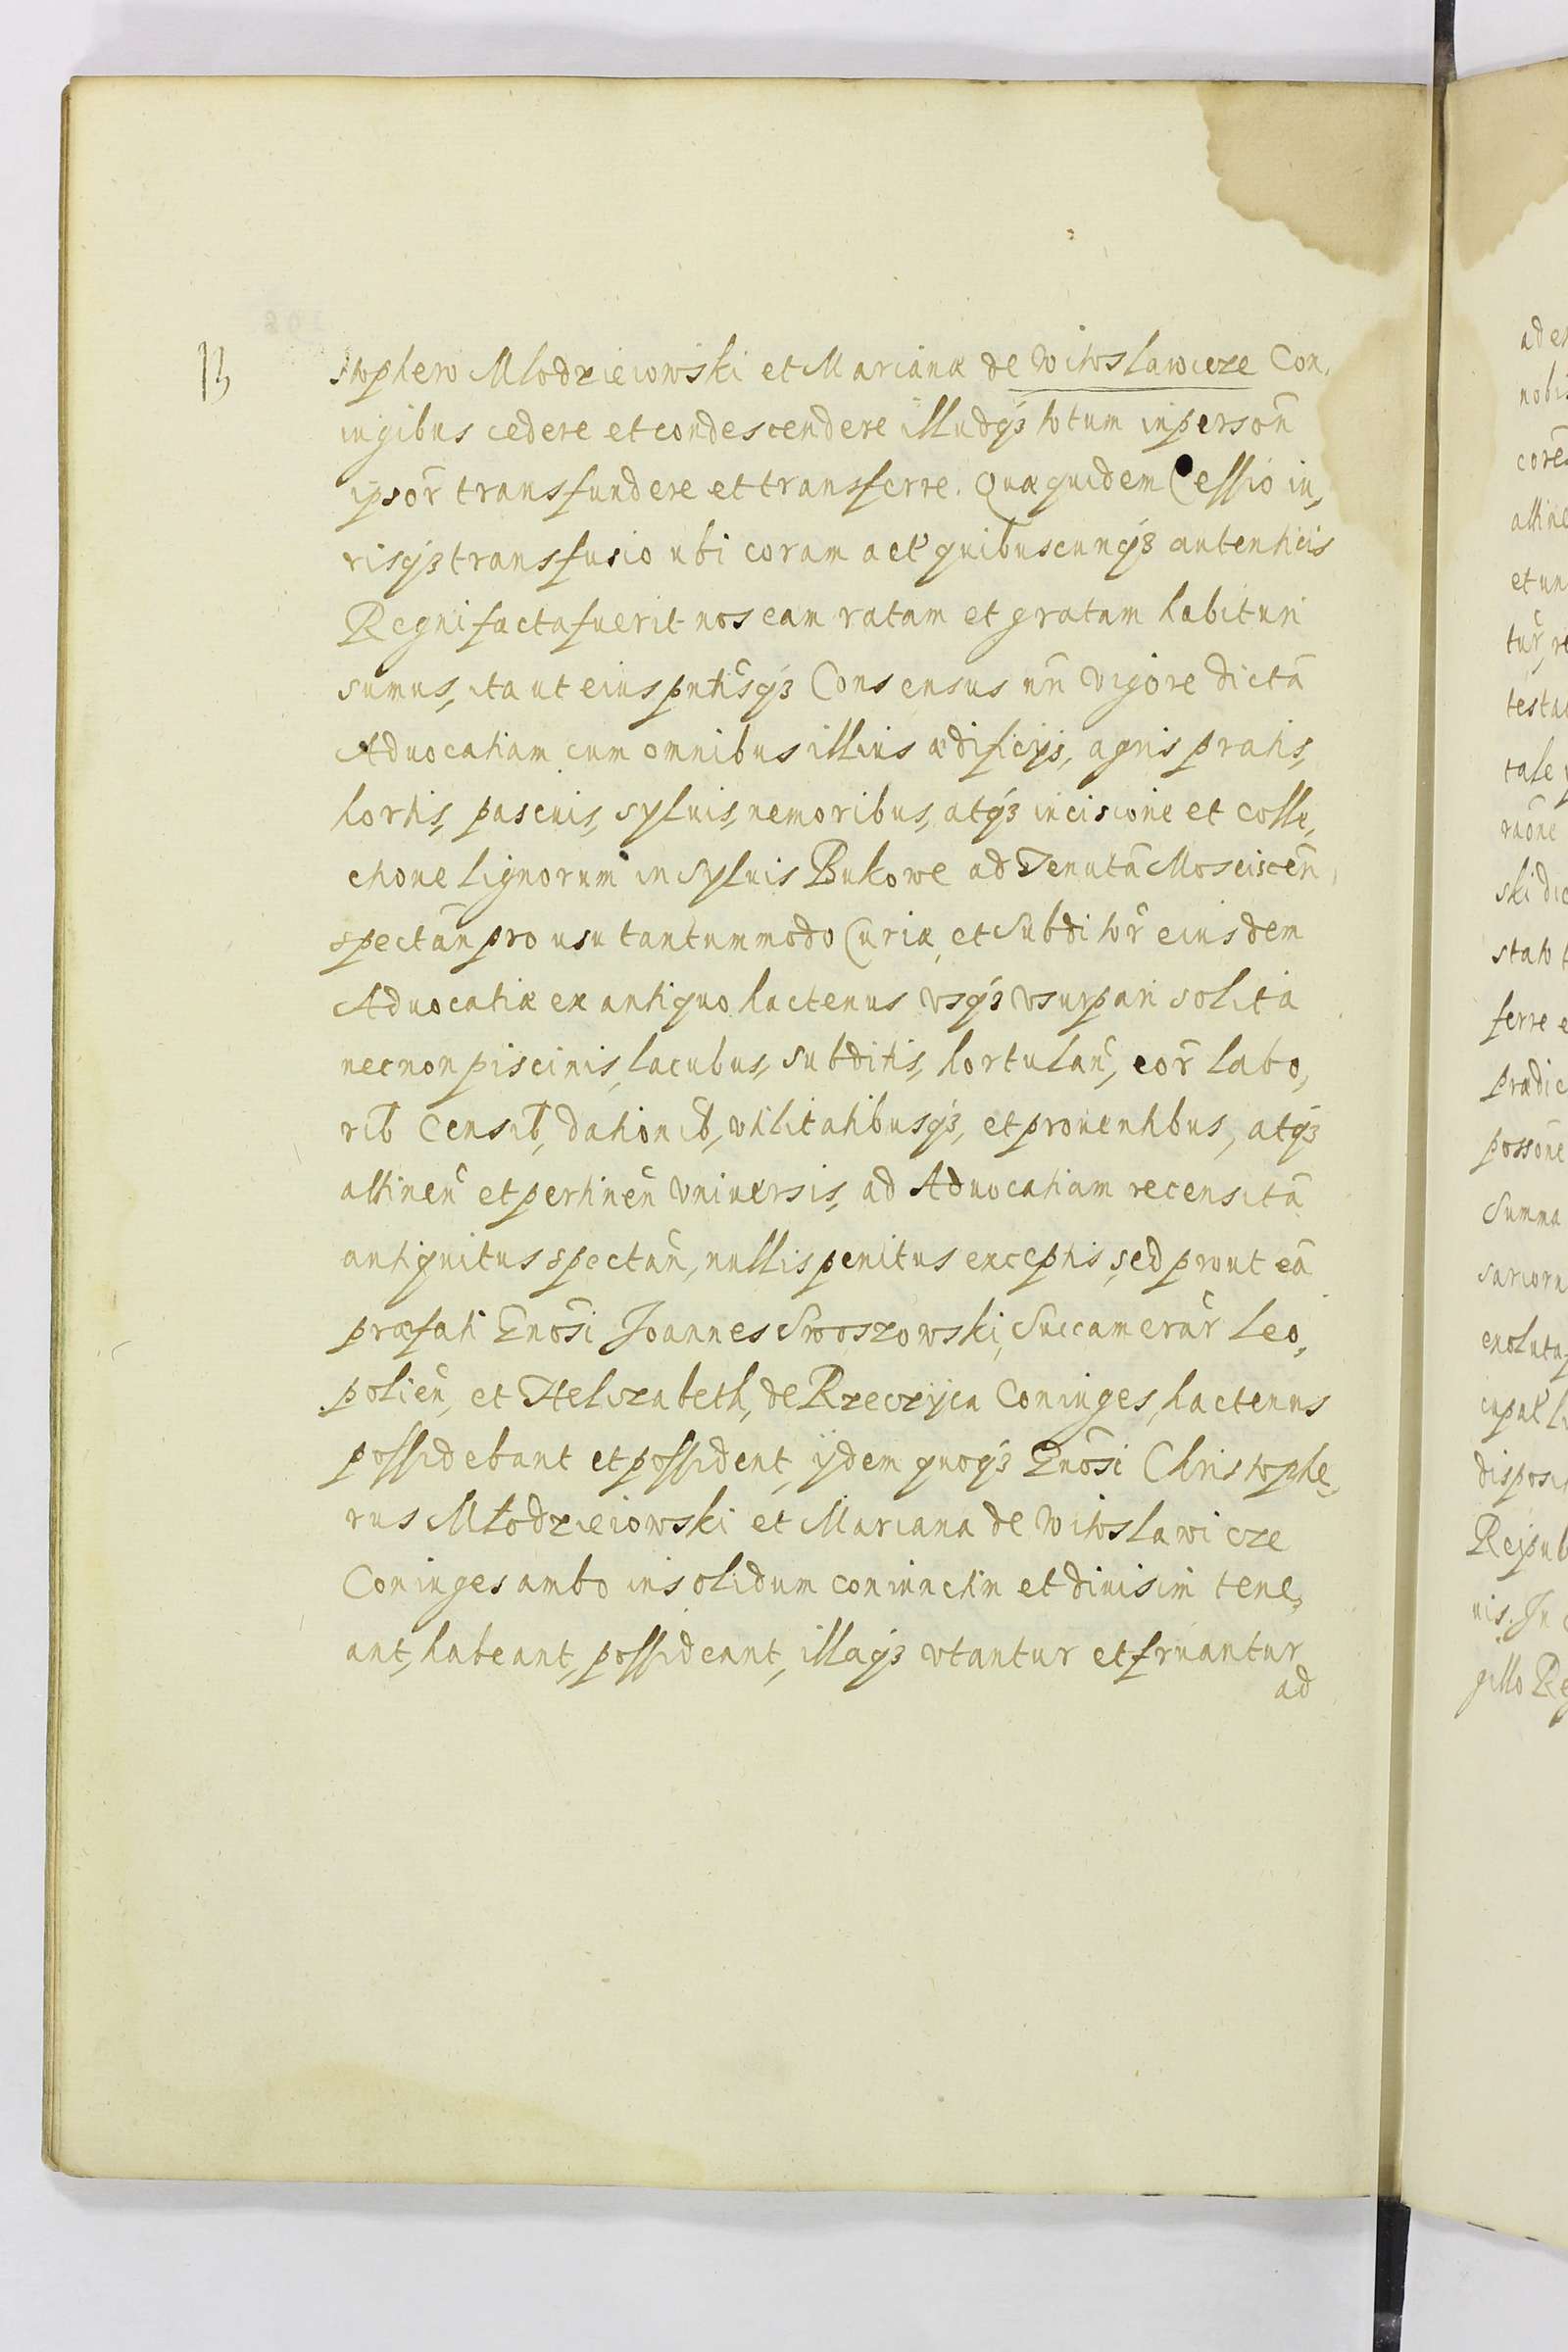 stophero Mlodzieiowski et Marianæ de Witoslawicze Con,
iugibus cedere et condescendere illudqȝ totum in persoñ
ipsor̃ transfundere et transferre. Quæ quidem Cessio iu,
risqȝ transfusio ubi coram act' quibuscunqȝ autenticis
Regni facta fuerit nos eam ratam et gratam habituri
sumus, ita ut eius pñtisqȝ Consensus nr̃i vigore dictã
Aduocatiam cum omnibus illius ædificijs, agris pratis,
hortis, pascuis, syluis, nemoribus, atqȝ incisione et colle,
ctione lignorum in syluis Bukowe ad Tenutã Mosciscen̄
spectan̄ pro usu tantummodo Curiæ, et Subditor̃ eiusdem
Aduocatiæ ex antiquo hactenus vsqȝ vsurpari solita
necnon piscinis, lacubus, subditis, hortulan̄, eor̃ labo,
rib Censib, dationib, vtilitatibusqȝ, et prouentibus, atqȝ
attinen̄ et pertinen̄ vniuersis, ad Aduocatiam recensitã
antiquitus spectan̄, nullis penitus exceptis, sed prout eã
præfati Gñosi Joannes Swoszowski, Succamerar̃ Leo,
polien̄, et Helizabeth, de Rzeczyca Coniuges, hactenus
possidebant et possident, ijdem quoqȝ Gñosi Christophe,
rus Młodzieiowski et Mariana de Witoslawicze
Coniuges ambo in solidum coniunctim et diuisim tene,
ant, habeant, possideant, illaqȝ vtantur et fruantur
ad